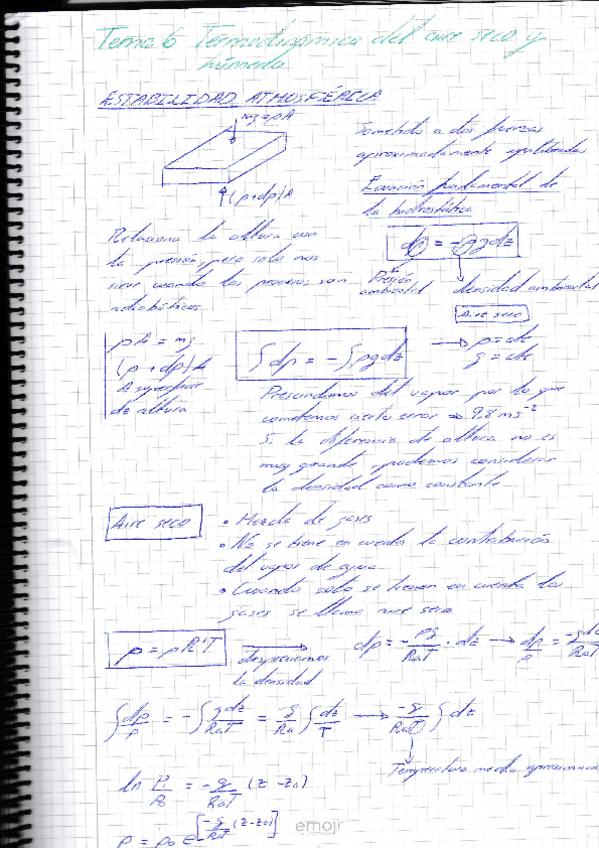 Tema 6 Termodinámica del aire seco y
húmedo
ESTABILIDAD ATMOSFÉRICA
mg + pA
(p+dp)A
Sometido a dos fuerzas
aproximadamente equilibradas
Ecuación fundamental de
la hidrostática
dp = -ρgdz
Presión
ambiental
densidad ambiental
Relaciona la altura con
la presión, pero solo nos
sirve cuando los procesos son
adiabáticos
Aire seco
pA = mg
(p + dp)A
A superficie
dz altura
∫dp = -∫ρgdz
ρ = cte
g = cte
Prescindimos del vapor por lo que
cometemos cierto error ⇒ 9,8 ms⁻²
Si la diferencia de altura no es
muy grande, podemos considerar
la densidad como constante
Aire seco
• Mezcla de gases
• No se tiene en cuenta la contribución
del vapor de agua
• Cuando solo se tienen en cuenta los
gases se llama aire seco
p = ρR'T
la densidad
dp = -pg/RaT · dz → dp/p = -gdz/RaT
∫dp/p = -∫gdz/RaT = -g/Ra ∫dz/T → -g/RaT ∫dz
Temperatura media aproximada
ln P₁/P₀ = -g/RaT (z - z₀)
p = p₀ e^[-g/RaT (z-z₀)]
emoji